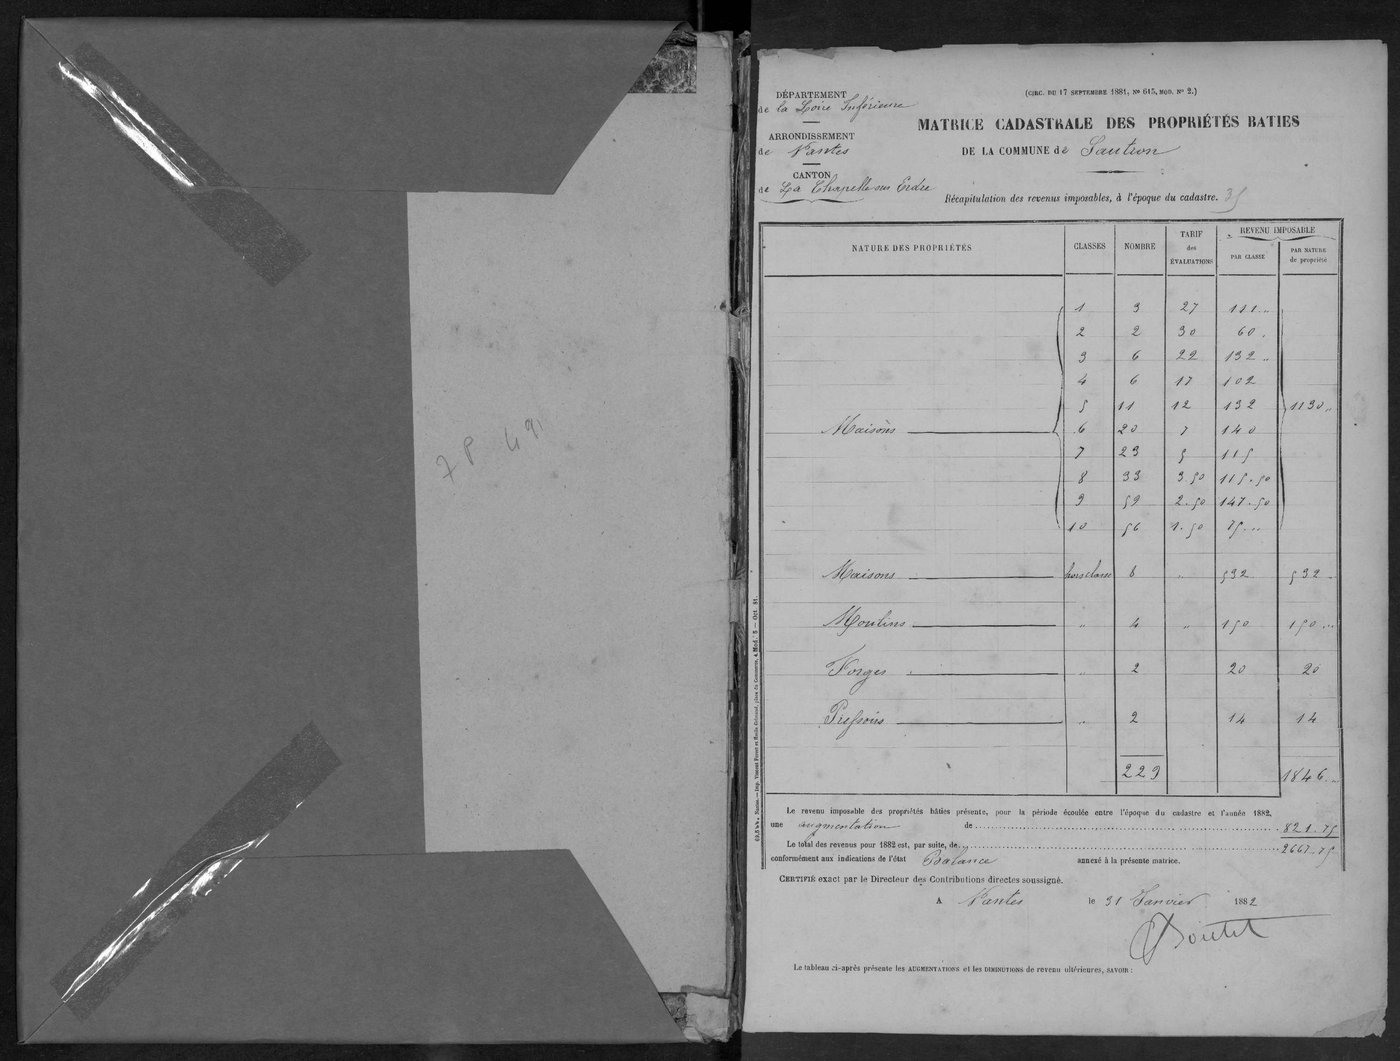 7 P 491
(CIRC. DU 17 SEPTEMBRE 1881, Nº 615, MOD. Nº 2.)
DÉPARTEMENT
de la Loire Inférieure
ARRONDISSEMENT
de Nantes
CANTON
de La Chapelle sur Erdre
MATRICE CADASTRALE DES PROPRIÉTÉS BATIES
DE LA COMMUNE de Sautron
Récapitulation des revenus imposables, à l'époque du cadastre. 35
NATURE DES PROPRIÉTÉS CLASSES NOMBRE TARIF des ÉVALUATIONS REVENU IMPOSABLE PAR CLASSE PAR NATURE de propriété
1 3 27 111 ..
2 2 30 60 .
3 6 22 132 ..
4 6 17 102
5 11 12 132 1130 ..
Maisons 6 20 7 140
7 23 5 115
8 33 3.50 115.50
9 59 2.50 147.50
10 56 1.50 75 ..
Maisons hors classe 8 .. 532 532
Moulins .. 4 .. 150 150 ..
Forges .. 2 20 20
Pressoirs .. 2 14 14
229 1846 ..
Le revenu imposable des propriétés bâties présente, pour la période écoulée entre l'époque du cadastre et l'année 1882,
une augmentation de 821.75
Le total des revenus pour 1882 est, par suite, de 2667.75
conformément aux indications de l'état Balance annexé à la présente matrice.
CERTIFIÉ exact par le Directeur des Contributions directes soussigné.
A Nantes le 31 Janvier 1882
Boutet
Le tableau ci-après présente les AUGMENTATIONS et les DIMINUTIONS de revenu ultérieures, SAVOIR :